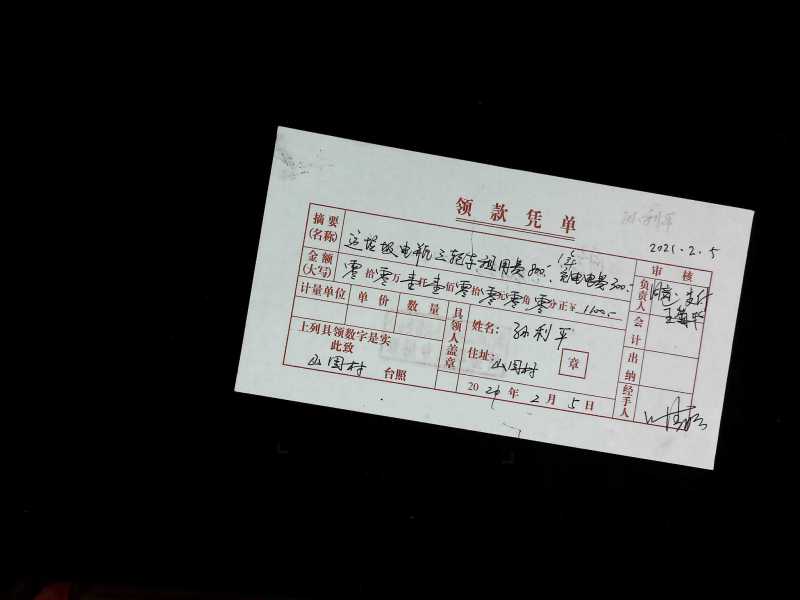 领款凭单
孙利平
2021.2.5
摘要(名称) 运垃圾电瓶三轮车租用费800.- 充电电费300.-
审核
金额(大写) 零拾零万壹仟壹佰零拾零元零角零分正￥1100.-
负责人 同意支付
计量单位 单价 数量
具领人盖章
姓名: 孙利平
会计
上列具领数字是实
此致
山周村 台照
住址: 山周村
章
出纳
2021年2月5日
经手人